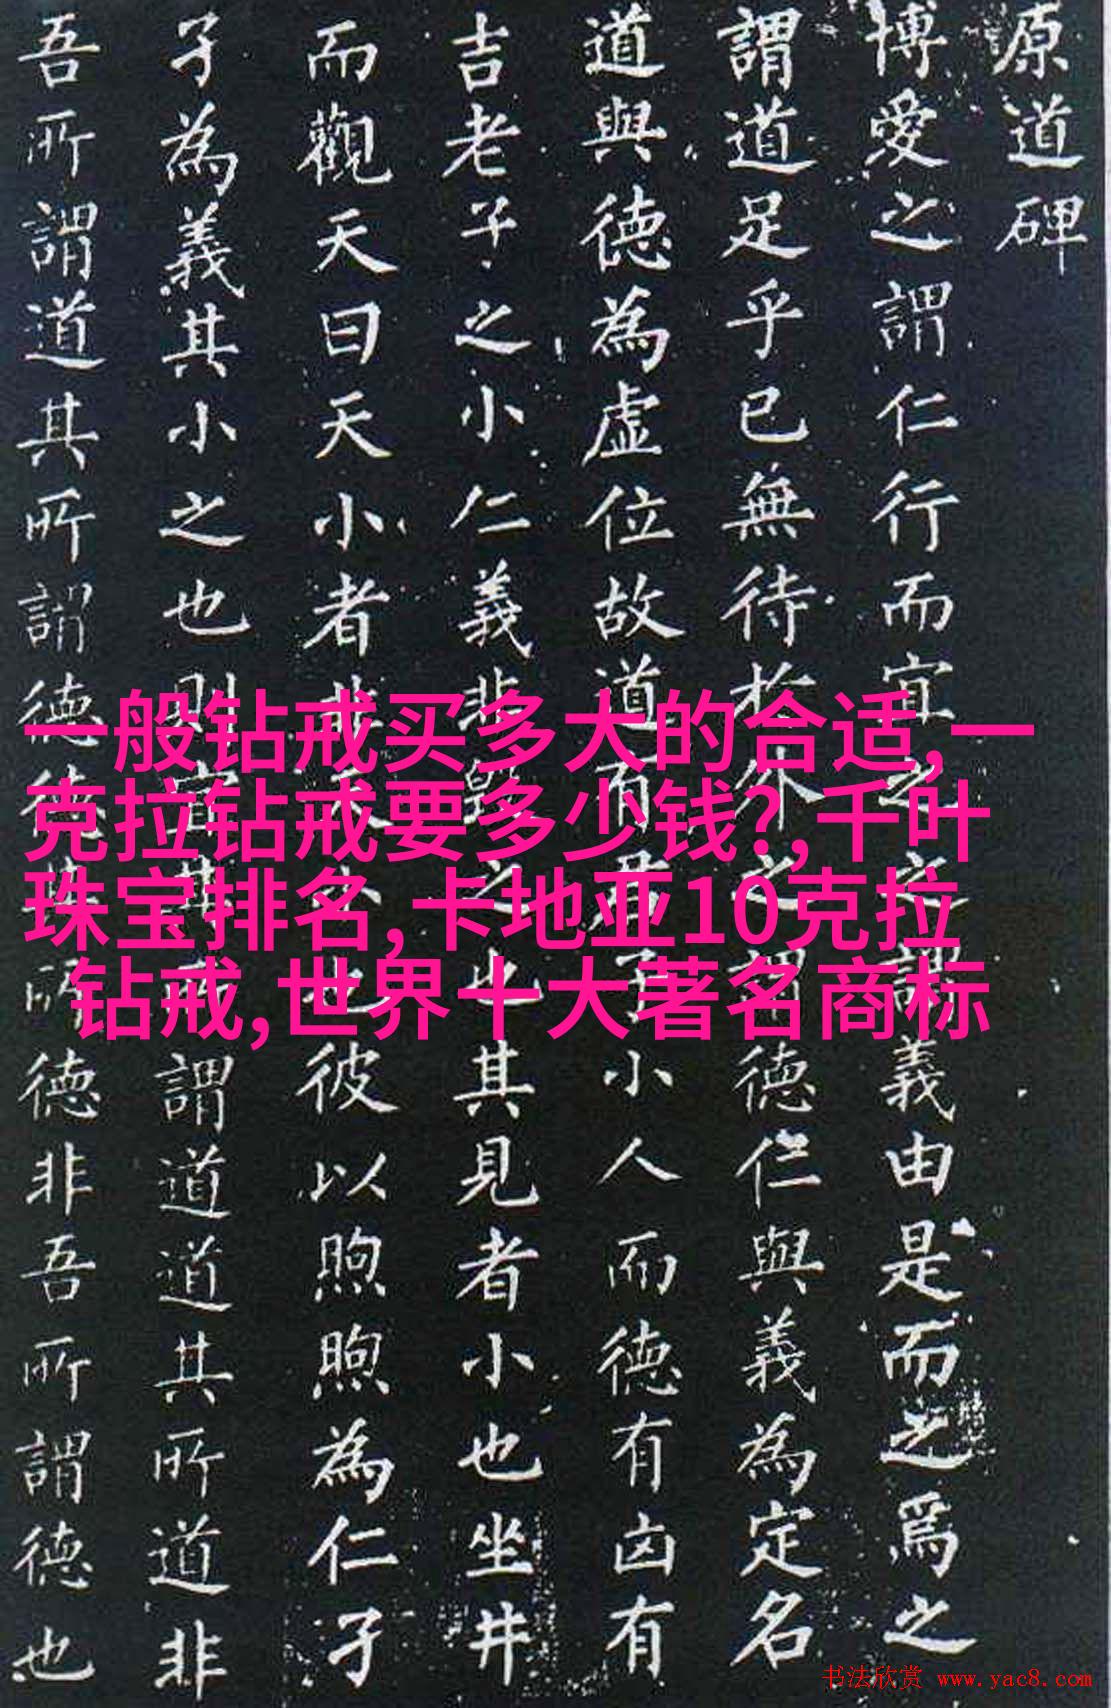 原道碑
博愛之謂仁行而宜之之謂義由是而之焉之
謂道足乎已無待扵外之謂德仁與義為定名
道與德為虛位故道有君子小人而德有凶有
吉老子之小仁義非毀之也其見者小也坐井
而觀天曰天小者非天小也彼以煦煦為仁孑
孑為義其小之也則宜其所謂道道其所道非
吾所謂道其所謂德德其所德非吾所謂德也
一般钻戒买多大的合适,一
克拉钻戒要多少钱?,千叶
珠宝排名,卡地亚10克拉
钻戒,世界十大著名商标
书法欣赏 www.yac8.com